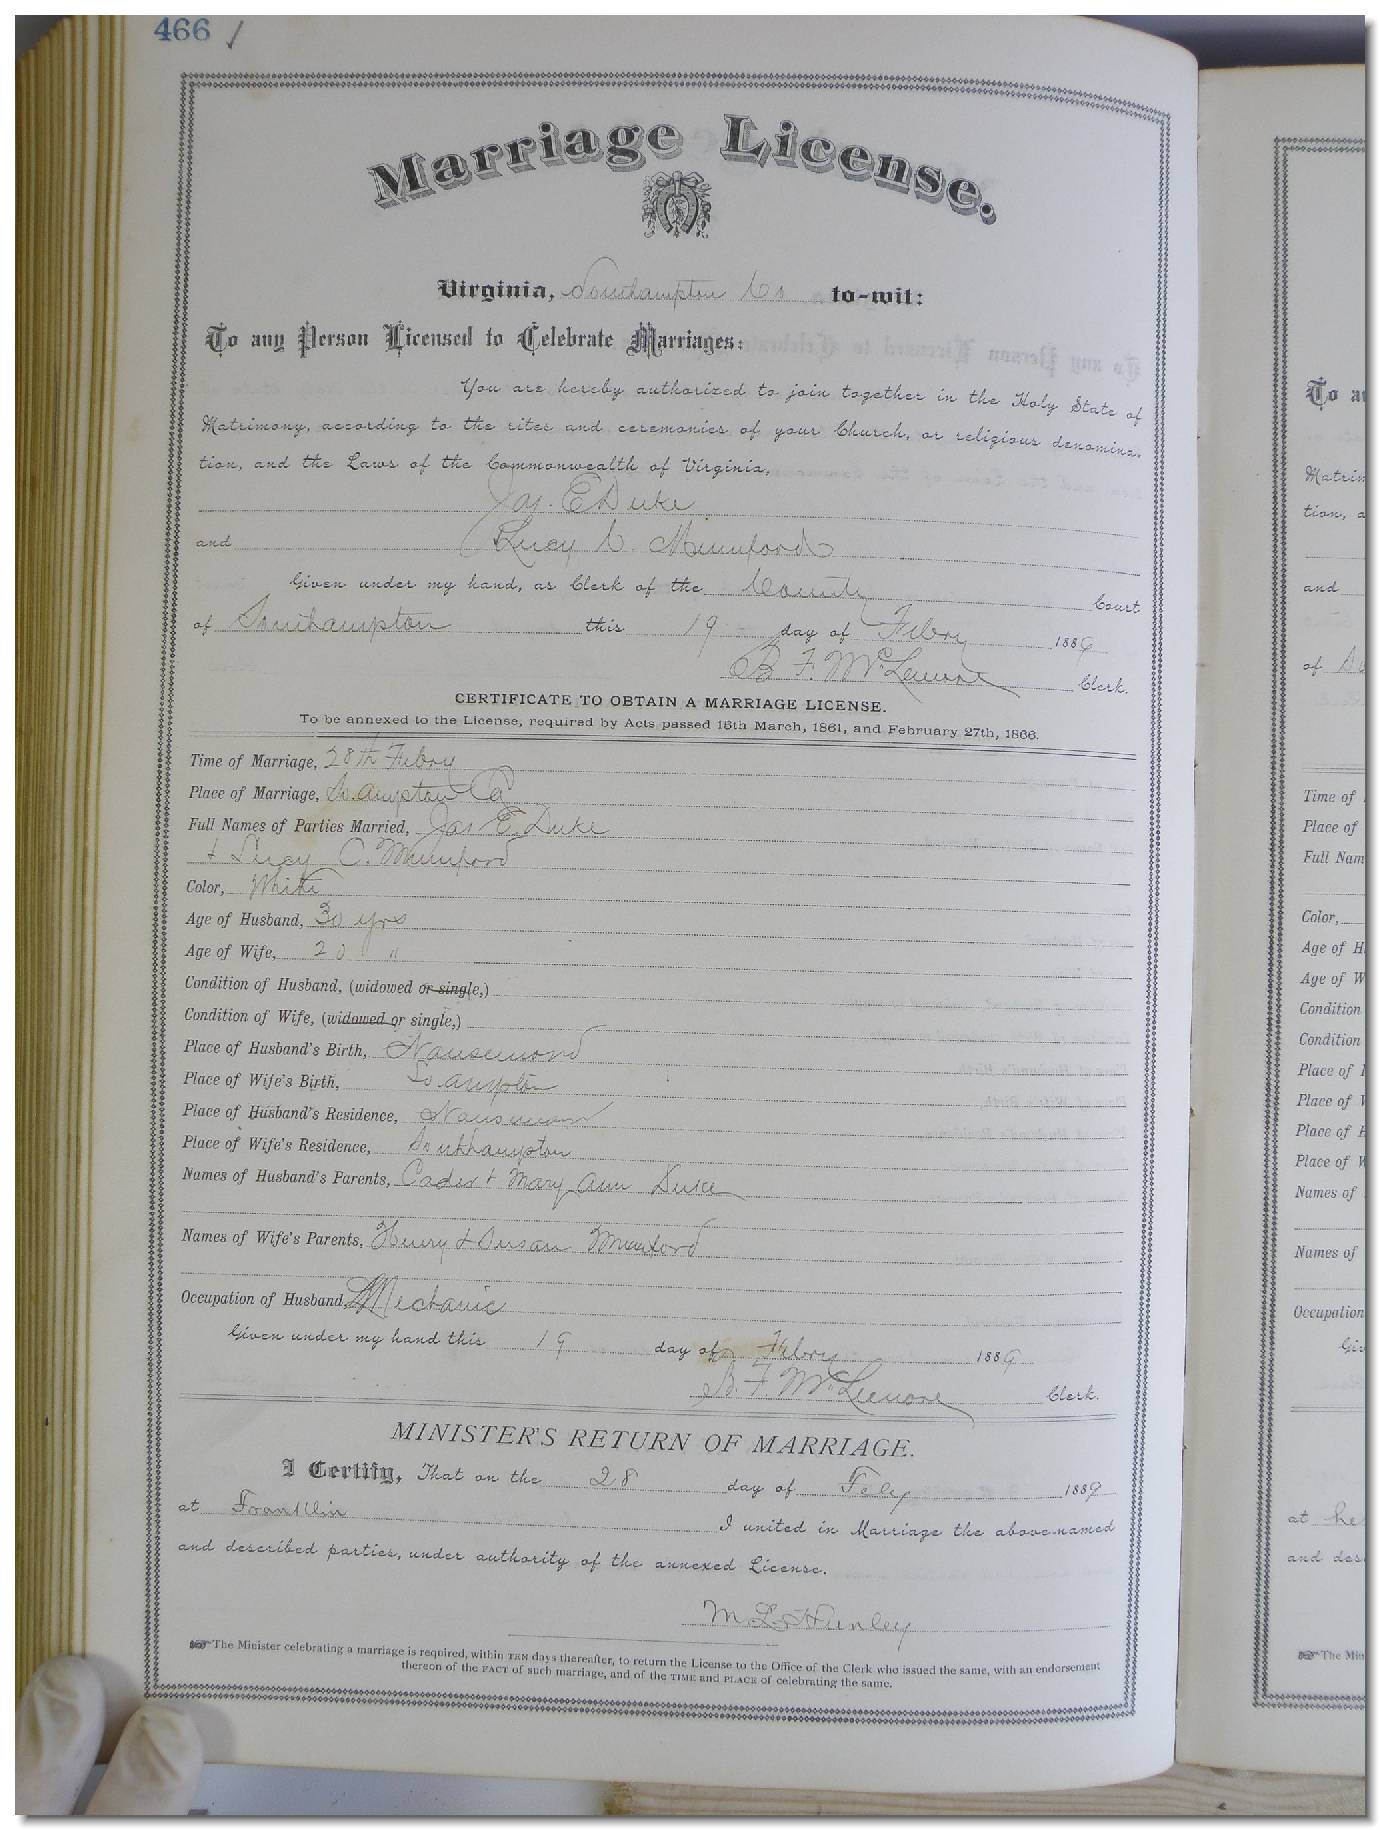 466
Marriage License.
Virginia, Southampton Co to-wit:
To any Person Licensed to Celebrate Marriages:
You are hereby authorized to join together in the Holy State of
Matrimony, according to the rites and ceremonies of your Church, or religious denomina-
tion, and the Laws of the Commonwealth of Virginia,
Jas. E Duke
and Lucy C. Mumford
Given under my hand, as Clerk of the County Court
of Southampton this 19 day of Febry 1889
B. F. McLemore Clerk.
CERTIFICATE TO OBTAIN A MARRIAGE LICENSE.
To be annexed to the License, required by Acts passed 16th March, 1861, and February 27th, 1866.
Time of Marriage, 28th Febry
Place of Marriage, So.ampton Co
Full Names of Parties Married, Jas E. Duke
+ Lucy C. Mumford
Color, White
Age of Husband, 30 yrs
Age of Wife, 20 "
Condition of Husband, (widowed or single,)
Condition of Wife, (widowed or single,)
Place of Husband's Birth, Nansemond
Place of Wife's Birth, So ampton
Place of Husband's Residence, Nansemond
Place of Wife's Residence, Southampton
Names of Husband's Parents, Cader + Mary Ann Duke
Names of Wife's Parents, Henry & Susan Mumford
Occupation of Husband, Mechanic
Given under my hand this 19 day of Febry 1889
B. F. McLemore Clerk.
MINISTER'S RETURN OF MARRIAGE.
I Certify, That on the 28 day of Feby 1889
at Franklin I united in Marriage the above-named
and described parties, under authority of the annexed License.
M. L. Hurley
The Minister celebrating a marriage is required, within TEN days thereafter, to return the License to the Office of the Clerk who issued the same, with an endorsement
thereon of the FACT of such marriage, and of the TIME and PLACE of celebrating the same.
To a
Matrim
tion, a
and
of
Time of
Place of
Full Nam
Color,
Age of H
Age of W
Condition
Condition
Place of
Place of W
Place of H
Place of W
Names of
Names of
Occupation
Giv
at he
and des
The Min